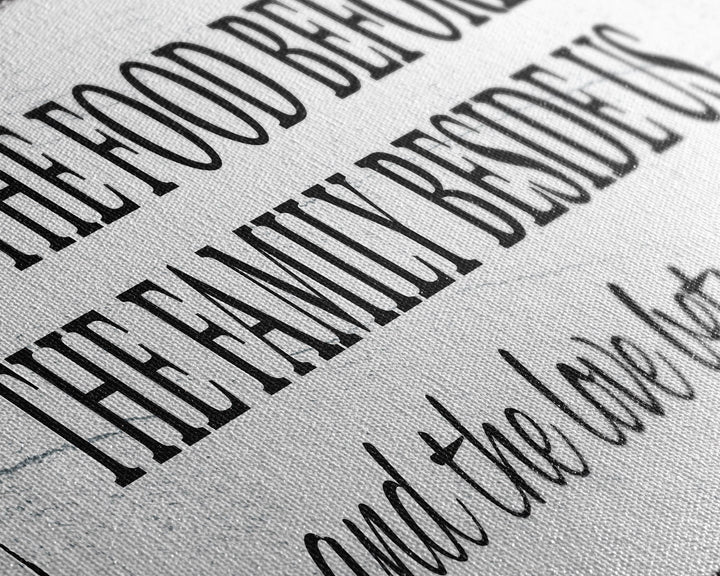 THE FOOD BEFORE
THE FAMILY BESIDE US
and the love bet